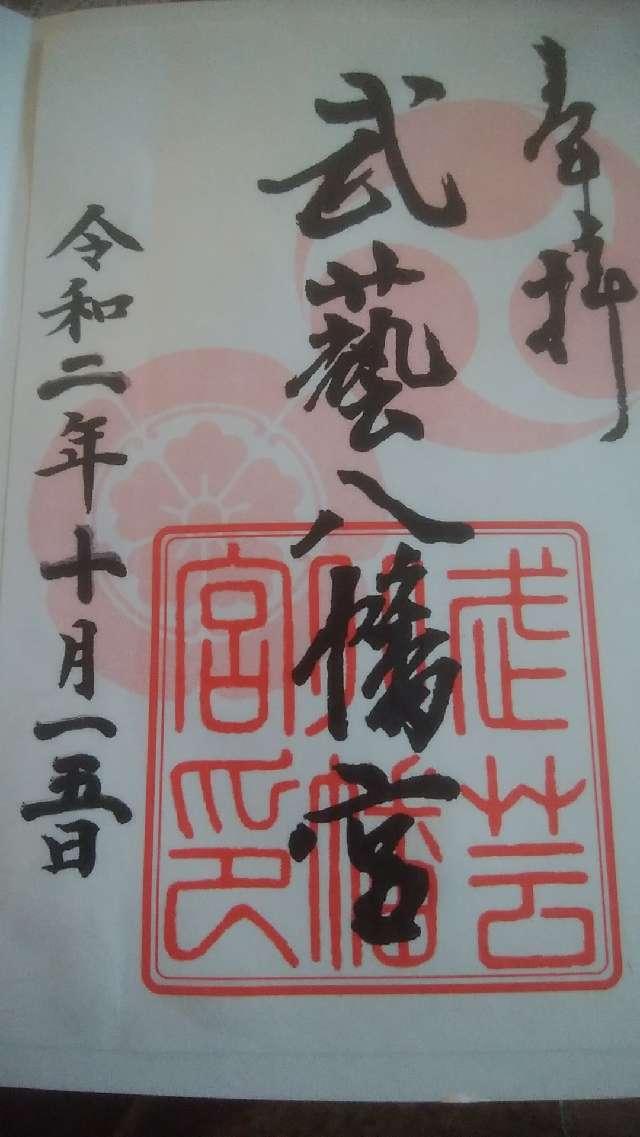 奉拝
武藝八幡宮
武芸
八幡
宮印
令和二年十月一五日